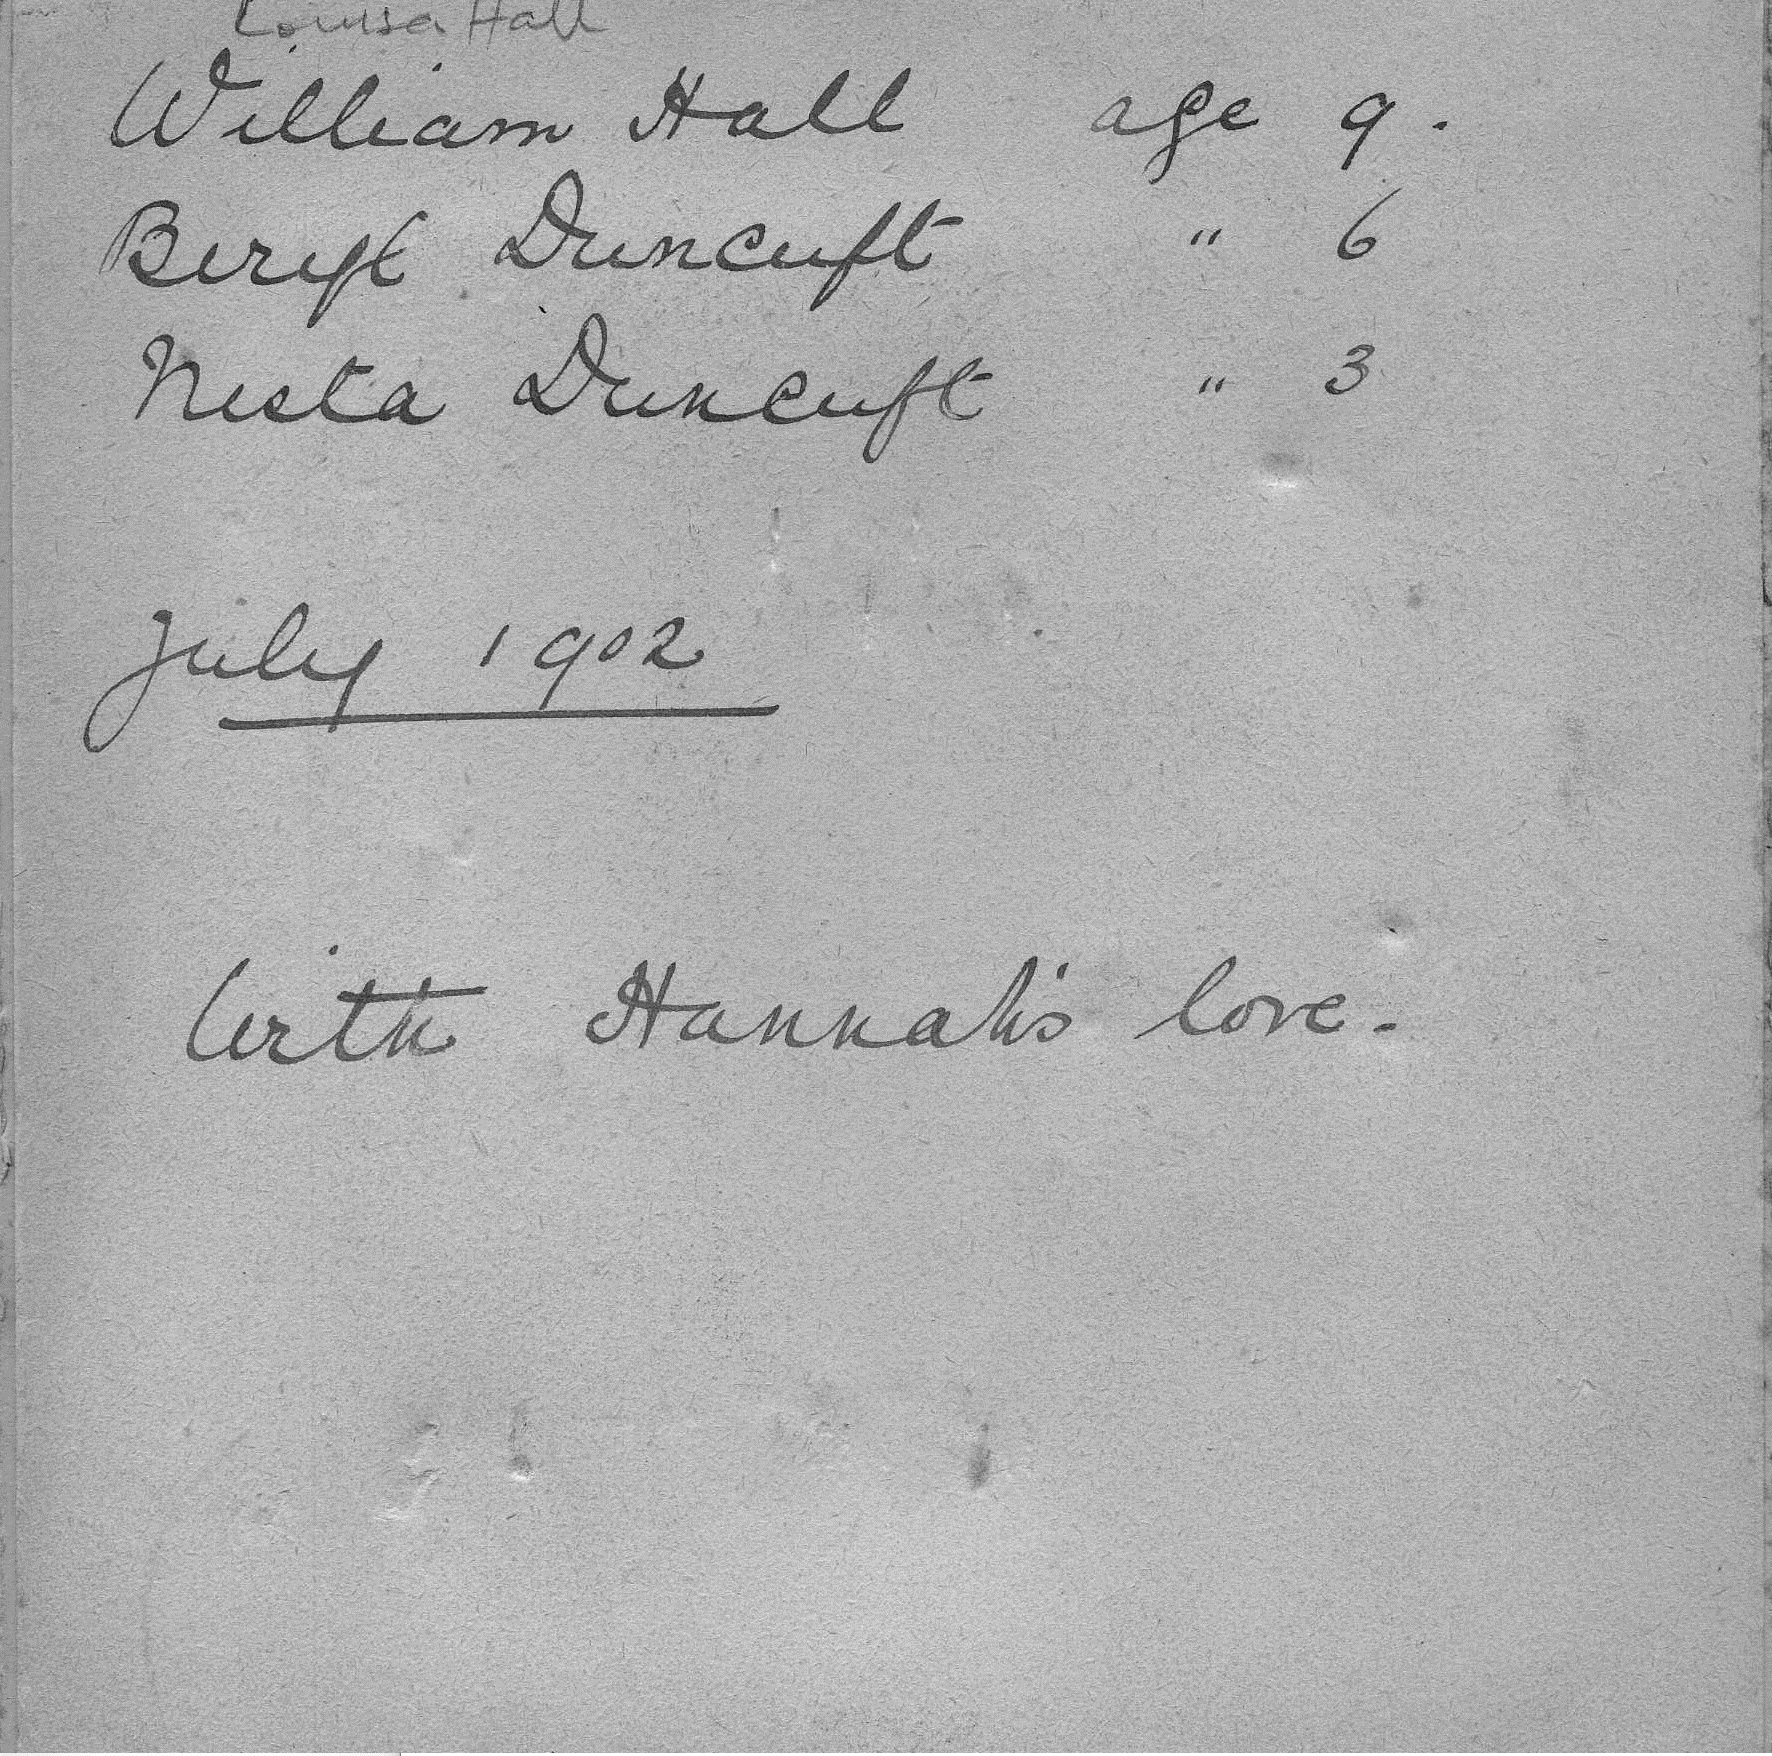 Louisa Hall
William Hall age 9.
Beryl Duncuft " 6
Nesta Duncuft " 3
July 1902
With Hannah's love.